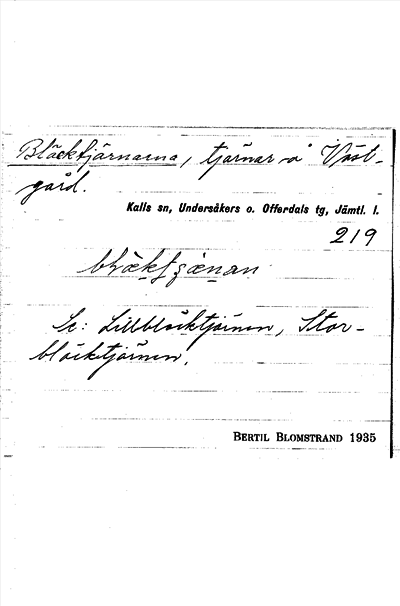 Bläcktjärnarna, tjärnar å Väst-
gård.
Kalls sn, Undersåkers o. Offerdals tg, Jämtl. l.
219
Se: Lillbläcktjärnen, Stor-
bläcktjärnen.
BERTIL BLOMSTRAND 1935